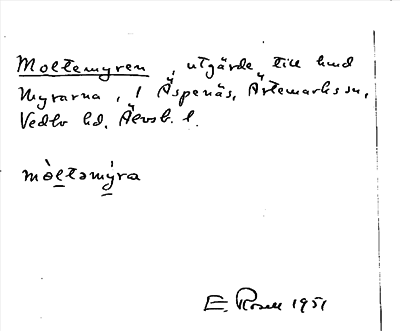 Moltemyren, utgärde till hmd
Myrarna, 1 Äspenäs, Ärtemarks sn,
Vedbo hd, Älvsb. l.
mòltəmýra
E. Rosell 1951